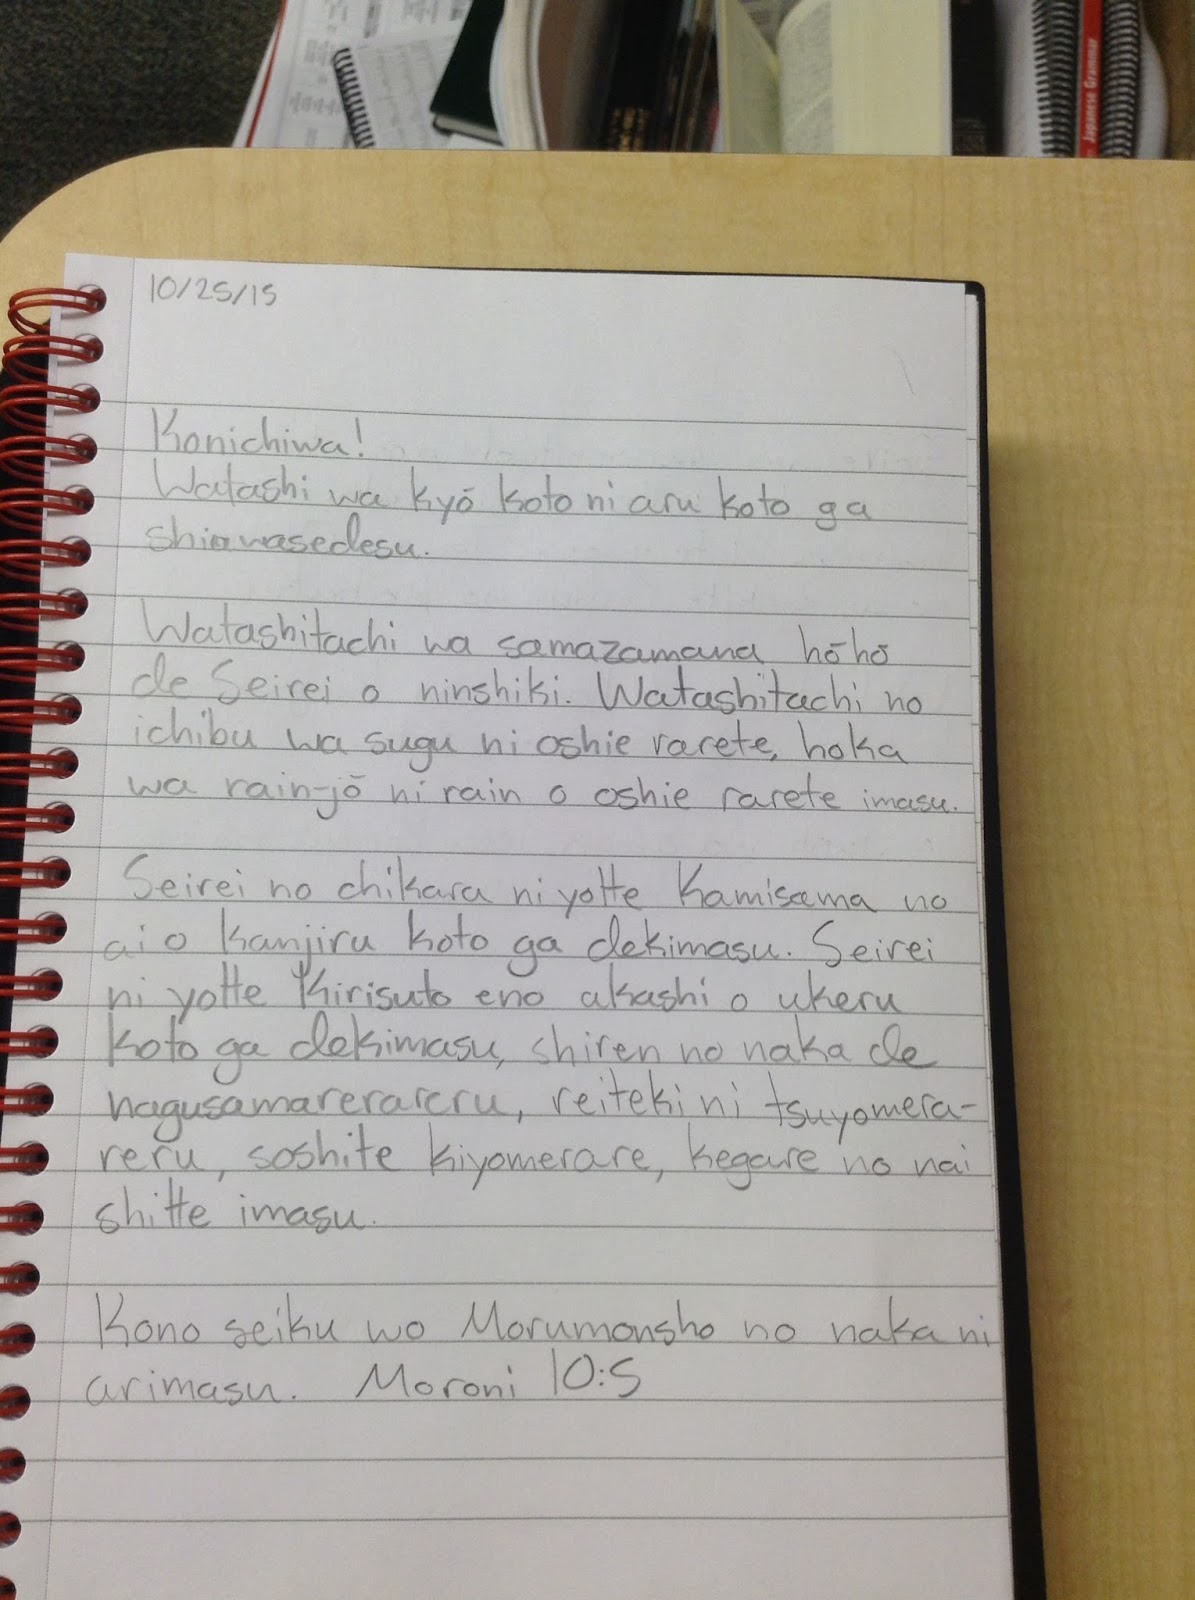 Japanese Grammar
10/25/15
Konichiwa!
Watashi wa kyō koto ni aru koto ga
shiawasedesu.
Watashitachi wa samazamana hōhō
de Seirei o ninshiki. Watashitachi no
ichibu wa sugu ni oshie rarete, hoka
wa rain-jō ni rain o oshie rarete imasu.
Seirei no chikara ni yotte Kamisama no
ai o kanjiru koto ga dekimasu. Seirei
ni yotte Kirisuto eno akashi o ukeru
koto ga dekimasu, shiren no naka de
nagusamarerareru, reiteki ni tsuyomera-
reru, soshite kiyomerare, kegare no nai
shitte imasu.
Kono seiku wo Morumonsho no naka ni
arimasu. Moroni 10:5